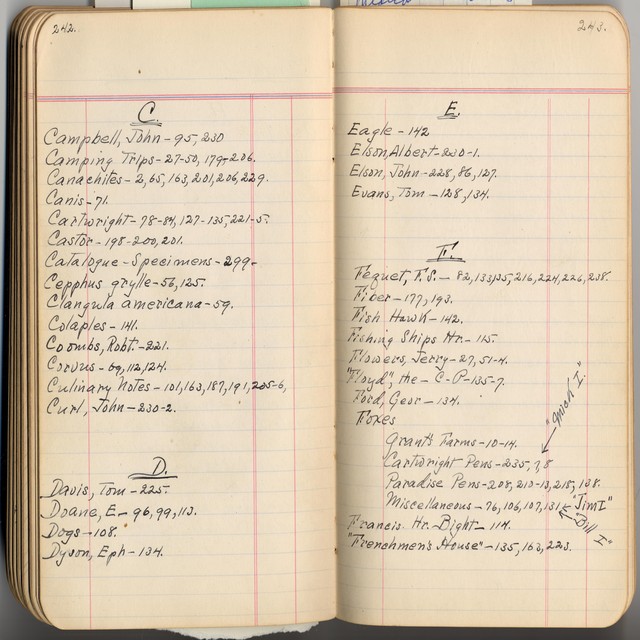 242.
C.
Campbell, John - 95, 230
Camping Trips - 27-50, 179-206.
Canachites - 2, 65, 163, 201, 206, 229.
Canis - 71.
Cartwright - 78-84, 127-135, 221-5.
Castor - 198-200, 201.
Catalogue - Specimens - 299-
Cepphus grylle - 56, 125.
Clangula americana - 59.
Colaples - 141.
Coombs, Robt. - 221.
Corvus - 69, 112, 124.
Culinary Notes - 101, 163, 187, 191, 205-6,
Curl, John - 230-2.
D.
Davis, Tom - 225.
Doane, E - 96, 99, 113.
Dogs - 108.
Dyson, Eph - 134.
243.
E.
Eagle - 142
Elson, Albert - 230-1.
Elson, John - 228, 86, 127.
Evans, Tom - 128, 134.
F.
Fequet, F.S. - 82, 133, 135, 216, 224, 226, 238.
Fiber - 177, 193.
Fish Hawk - 142.
Fishing Ships Hr. - 115.
Flowers, Jerry - 27, 51-4.
"Floyd", the - C-P - 135-7.
Ford, Geor - 134.
Foxes
Grants Farms - 10-14.
Cartwright Pens - 235, 7, 8
Paradise Pens - 208, 210-13, 215, 138.
Miscellaneous - 76, 106, 107, 131
"Mick I"
"Jim I"
"Bill I"
Francis Hr. Bight - 114.
"Frenchmen's House" - 135, 163, 223.